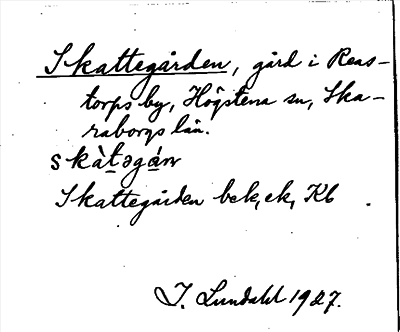 Skattegården, gård i Reas-
torps by, Högstena sn, Ska-
raborgs län.
skàt̠əgá̠n
Skattegården bek, ek, Kb.
I. Lundahl 1927.